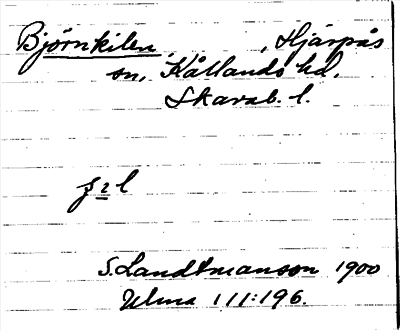 Björnkilen, Hjärpås
sn, Kållands hd.
Skarab. l.
S. Landtmanson 1900
Ulma 111:196.